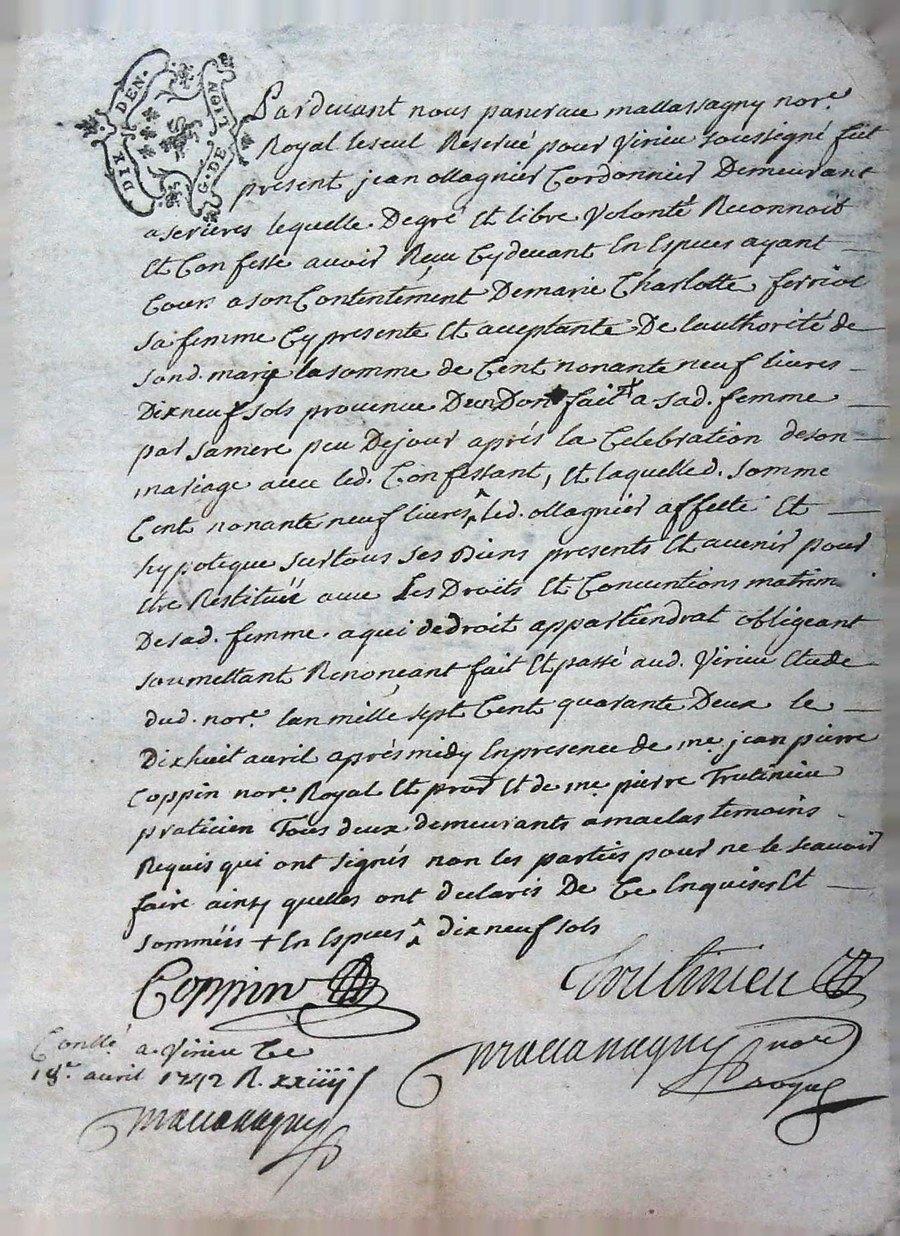 DIX DEN.
G. DE LION
Pardevant nous pancrace mallassagny nore.
Royal le seul Reservé pour Virieu soussigné fut
present jean ollagnier Cordonnier Demeurant
a serieres lequelle Degré Et libre Volonté Reconnoit
Et Confesse avoir Recu Cydevant En Especes ayant
Cour a son Contentement De marie Charlotte ferriol
sa femme Cy presente Et aceptante De lauthorité de
sond. mary la somme de Cent nonante neuf livres
Dix neuf sols provenue Dun Don fait + a sad. femme
par sa mere peu De jour après la Celebration de son
mariage avec led. Confessant, Et laquelle d. somme
Cent nonante neuf livres ^ led. ollagnier affecte Et
hypoteque sur tous ses Biens presents Et avenir pour
Etre Restituée avec Les Droits Et Conventions matrim.
De sad. femme. a qui de droit appartiendrat obligeant
soumettant Renonçant fait Et passé aud. Virieu Etude
dud. nore. lan mille sept Cent quarante Deux le
Dixhuit avril après midy En presence de me. jean pierre
Coppin nore. Royal Et procr Et de me. pierre Trutinieu
praticien Tous deux demeurants a maclas temoins
Requis qui ont signés non les parties pour ne le scavoir
faire ainsy quelles ont declarés De Ce Enquises Et
sommeés + En Especes ^ dix neuf sols
Coppin
Trutinieu
Conllé a Virieu Ce
18e. avril 1742 R. xxiiij s
mallassagny nore
royal
mallassagny